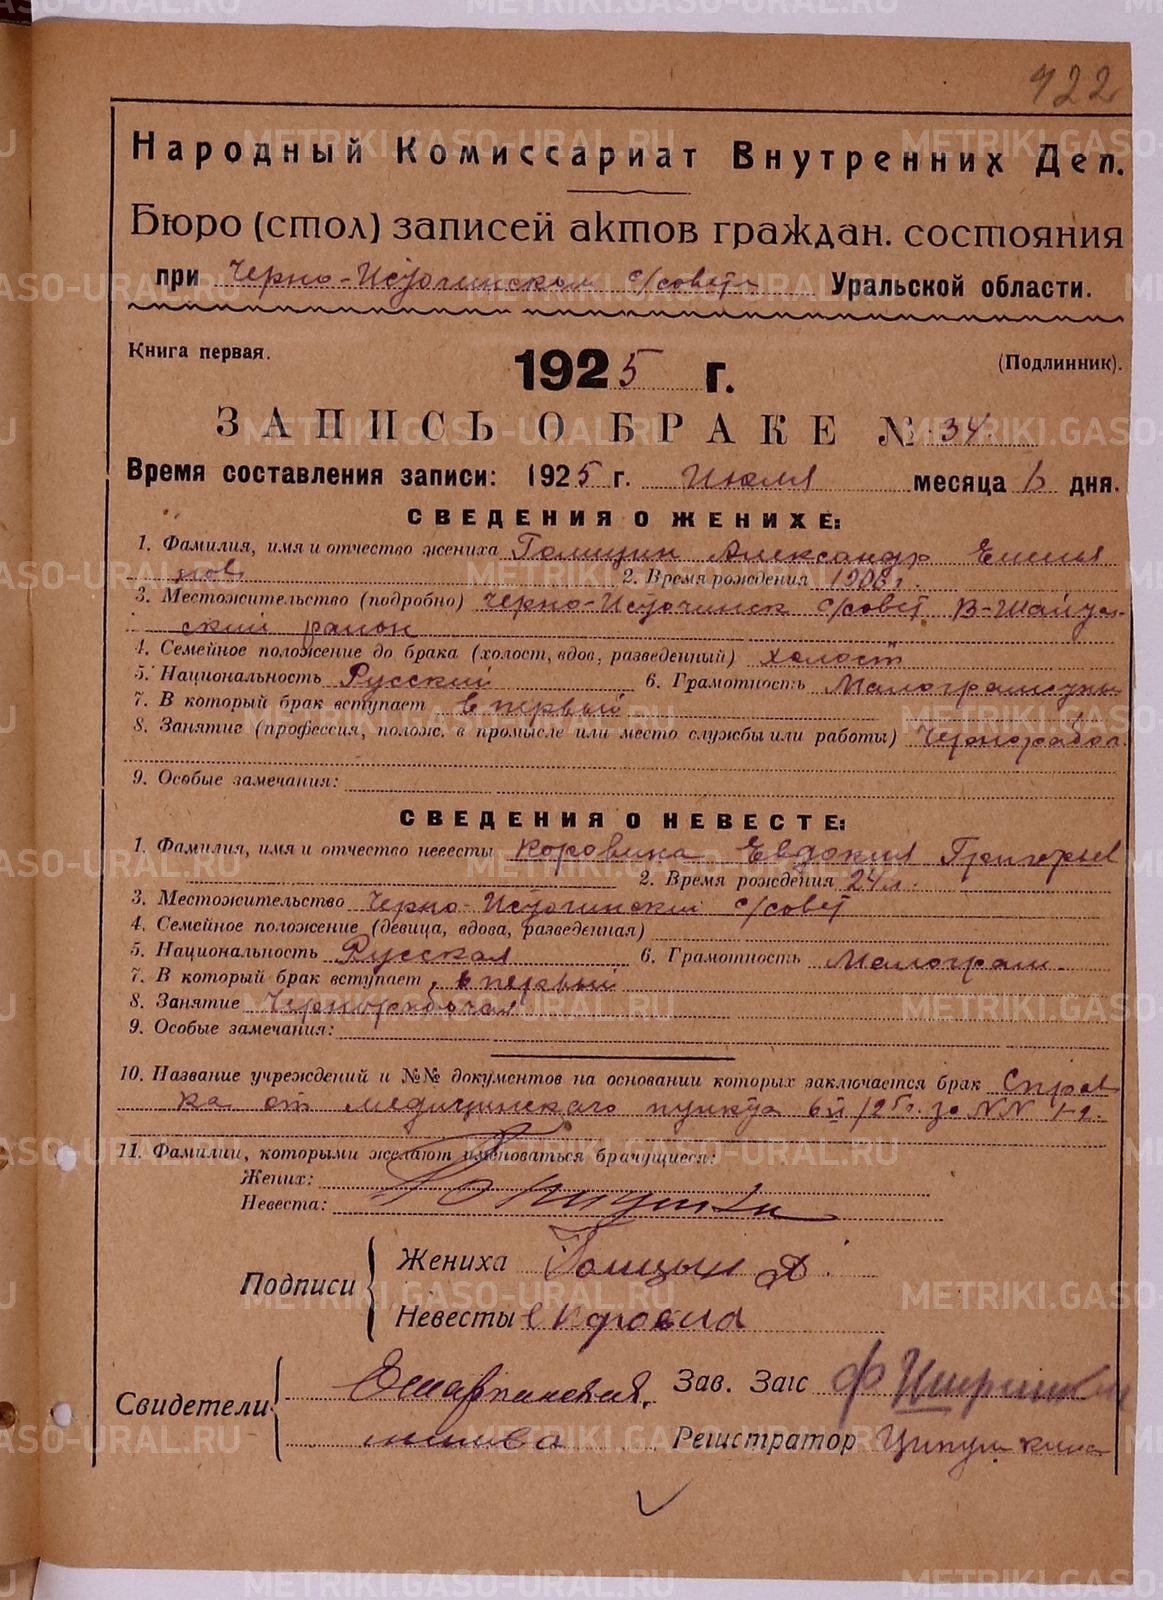 122
Народный Комиссариат Внутренних Дел.
Бюро (стол) записей актов граждан. состояния
при Черно-Источинском с/совете Уральской области.
Книга первая. (Подлинник).
1925 г.
ЗАПИСЬ О БРАКЕ № 34
Время составления записи: 1925 г. Июля месяца 6 дня.
СВЕДЕНИЯ О ЖЕНИХЕ:
1. Фамилия, имя и отчество жениха Голицин Александр Емелья
нов 2. Время рождения 1906 г.
3. Местожительство (подробно) Черно-Источинск с/совет В-Шайтан-
ский район
4. Семейное положение до брака (холост, вдов, разведенный) холост
5. Национальность Русский 6. Грамотность Малограмотны
7. В который брак вступает в первый
8. Занятие (профессия, полож. в промысле или место службы или работы) Чернорабоч.
9. Особые замечания:
СВЕДЕНИЯ О НЕВЕСТЕ:
1. Фамилия, имя и отчество невесты Коровина Евдокия Григорьев
2. Время рождения 24 л.
3. Местожительство Черно-Источинский с/совет
4. Семейное положение (девица, вдова, разведенная)
5. Национальность Русская 6. Грамотность Малограм.
7. В который брак вступает, в первый
8. Занятие Чернорабочая
9. Особые замечания:
10. Название учреждений и №№ документов на основании которых заключается брак Справ
ка от медицинского пункта 6/VII/25 г. за NN 1-2.
11. Фамилии, которыми желают именоваться брачущиеся:
Жених:
Невеста:
Подписи
Жениха Голицын А.
Невесты Е Коровина
Свидетели
Зав. Загс
Регистратор
METRIKI.GASO-URAL.RU